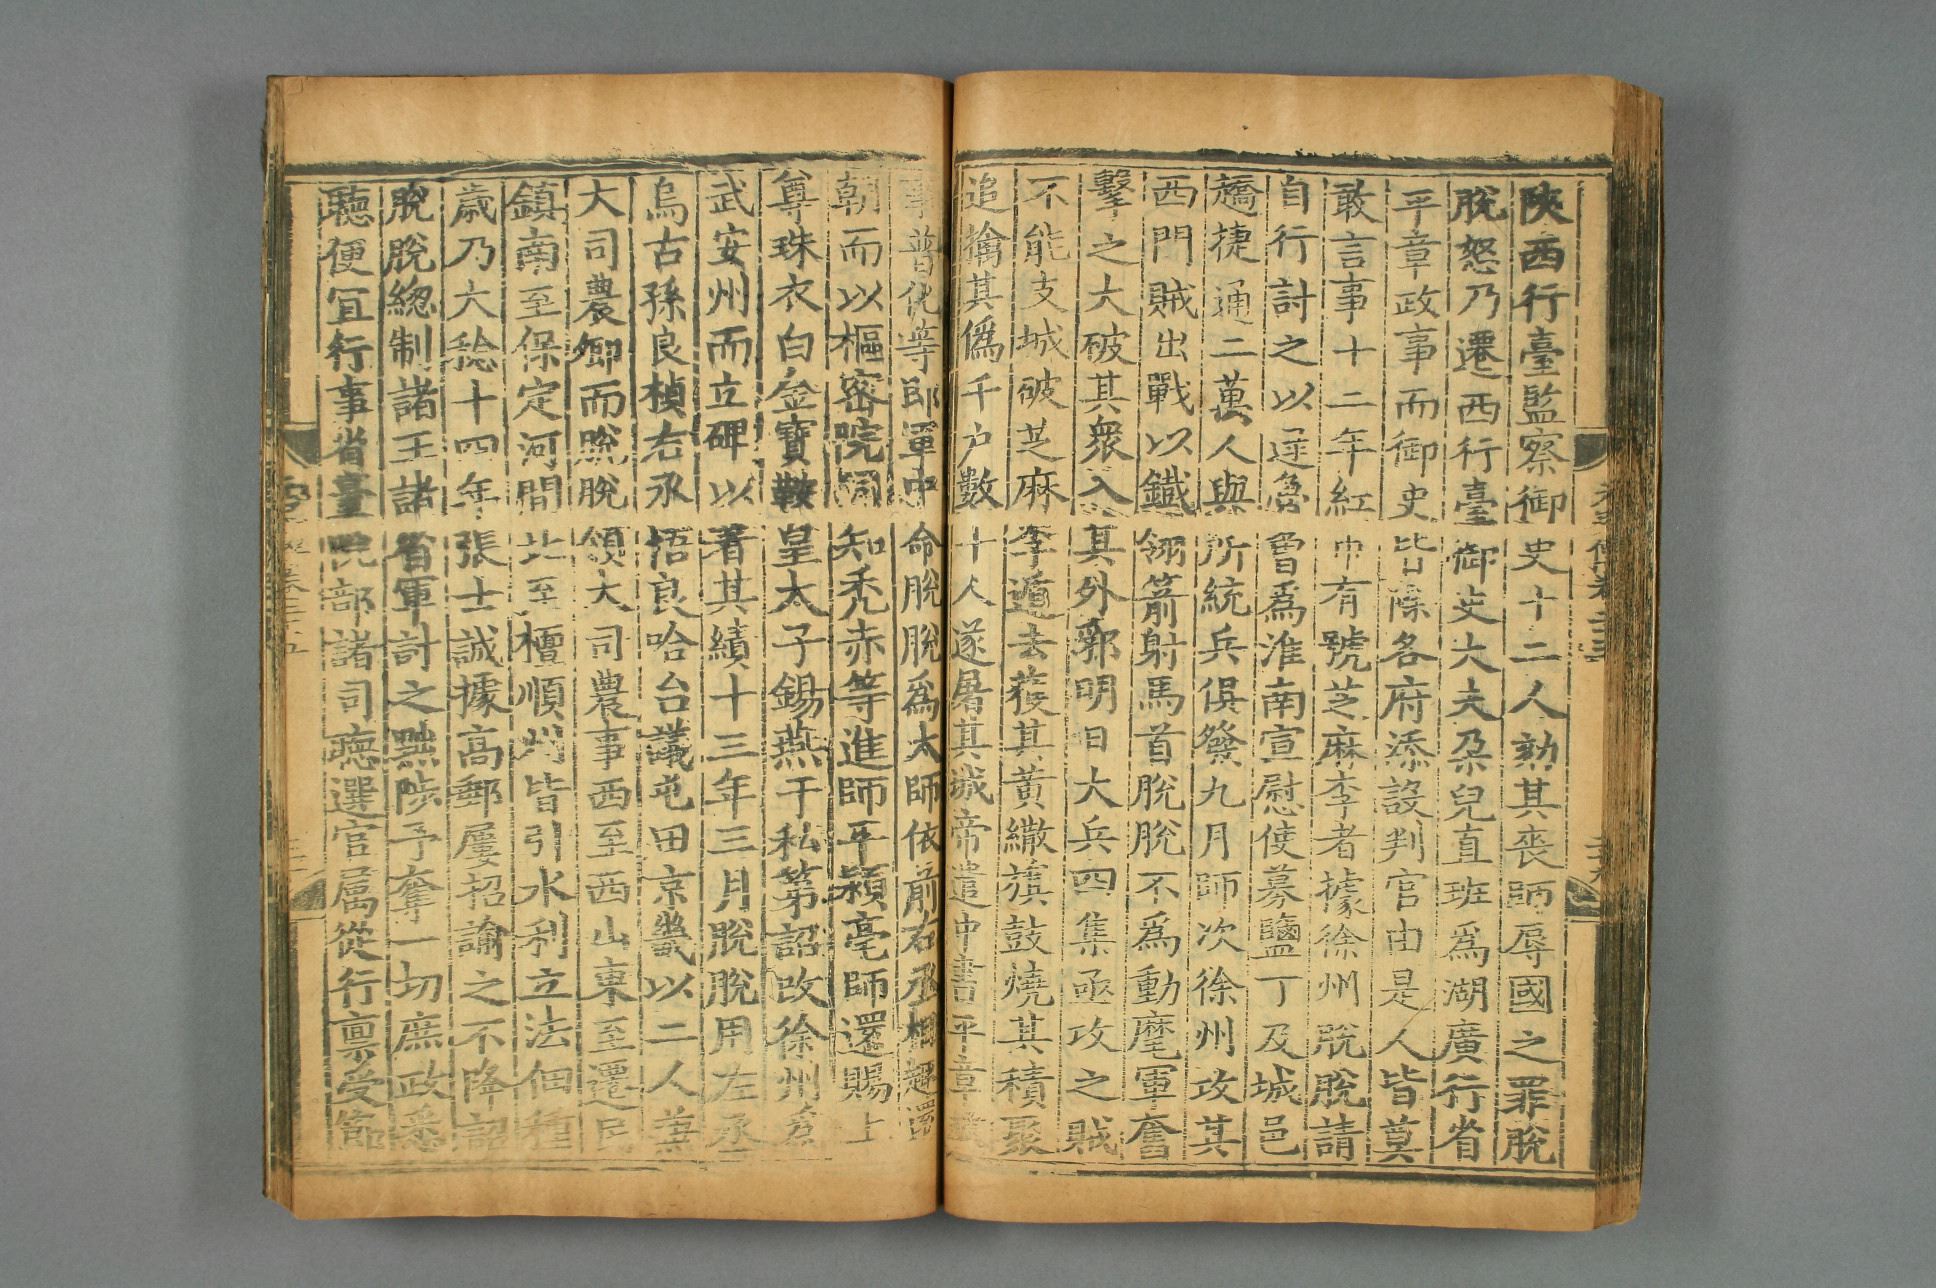 陝西行臺監察御史十二人劾其喪師辱國之罪脫
脫怒乃遷西行臺御史大夫朶兒直班爲湖廣行省
平章政事而御史皆除各府添設判官由是人皆莫
敢言事十二年紅巾有號芝麻李者據徐州脫脫請
自行討之以逯魯曾爲淮南宣慰使募鹽丁及城邑
趫捷通二萬人與所統兵俱發九月師次徐州攻其
西門賊出戰以鐵翎箭射馬首脫脫不爲動麾軍奮
擊之大破其衆入其外郛明日大兵四集亟攻之賊
不能支城破芝麻李遁去獲其黃繖旗鼓燒其積聚
追擒其僞千户數十人遂屠其城帝遣中書平章政
事普化等即軍中命脫脫爲太師依前右丞相趣還
朝而以樞密院同知禿赤等進師平潁亳師還賜上
尊珠衣白金寶鞍皇太子錫燕于私第詔改徐州爲
武安州而立碑以著其績十三年三月脫脫用左丞
烏古孫良楨右丞悟良哈台議屯田京畿以二人兼
大司農卿而脫脫領大司農事西至西山東至遷民
鎮南至保定河間北至檀順州皆引水利立法佃種
歲乃大稔十四年張士誠據高郵屢招諭之不降詔
脫脫緫制諸王諸省軍討之黜陟予奪一切庶政悉
聽便宜行事省臺院部諸司聴選官属從行禀受節